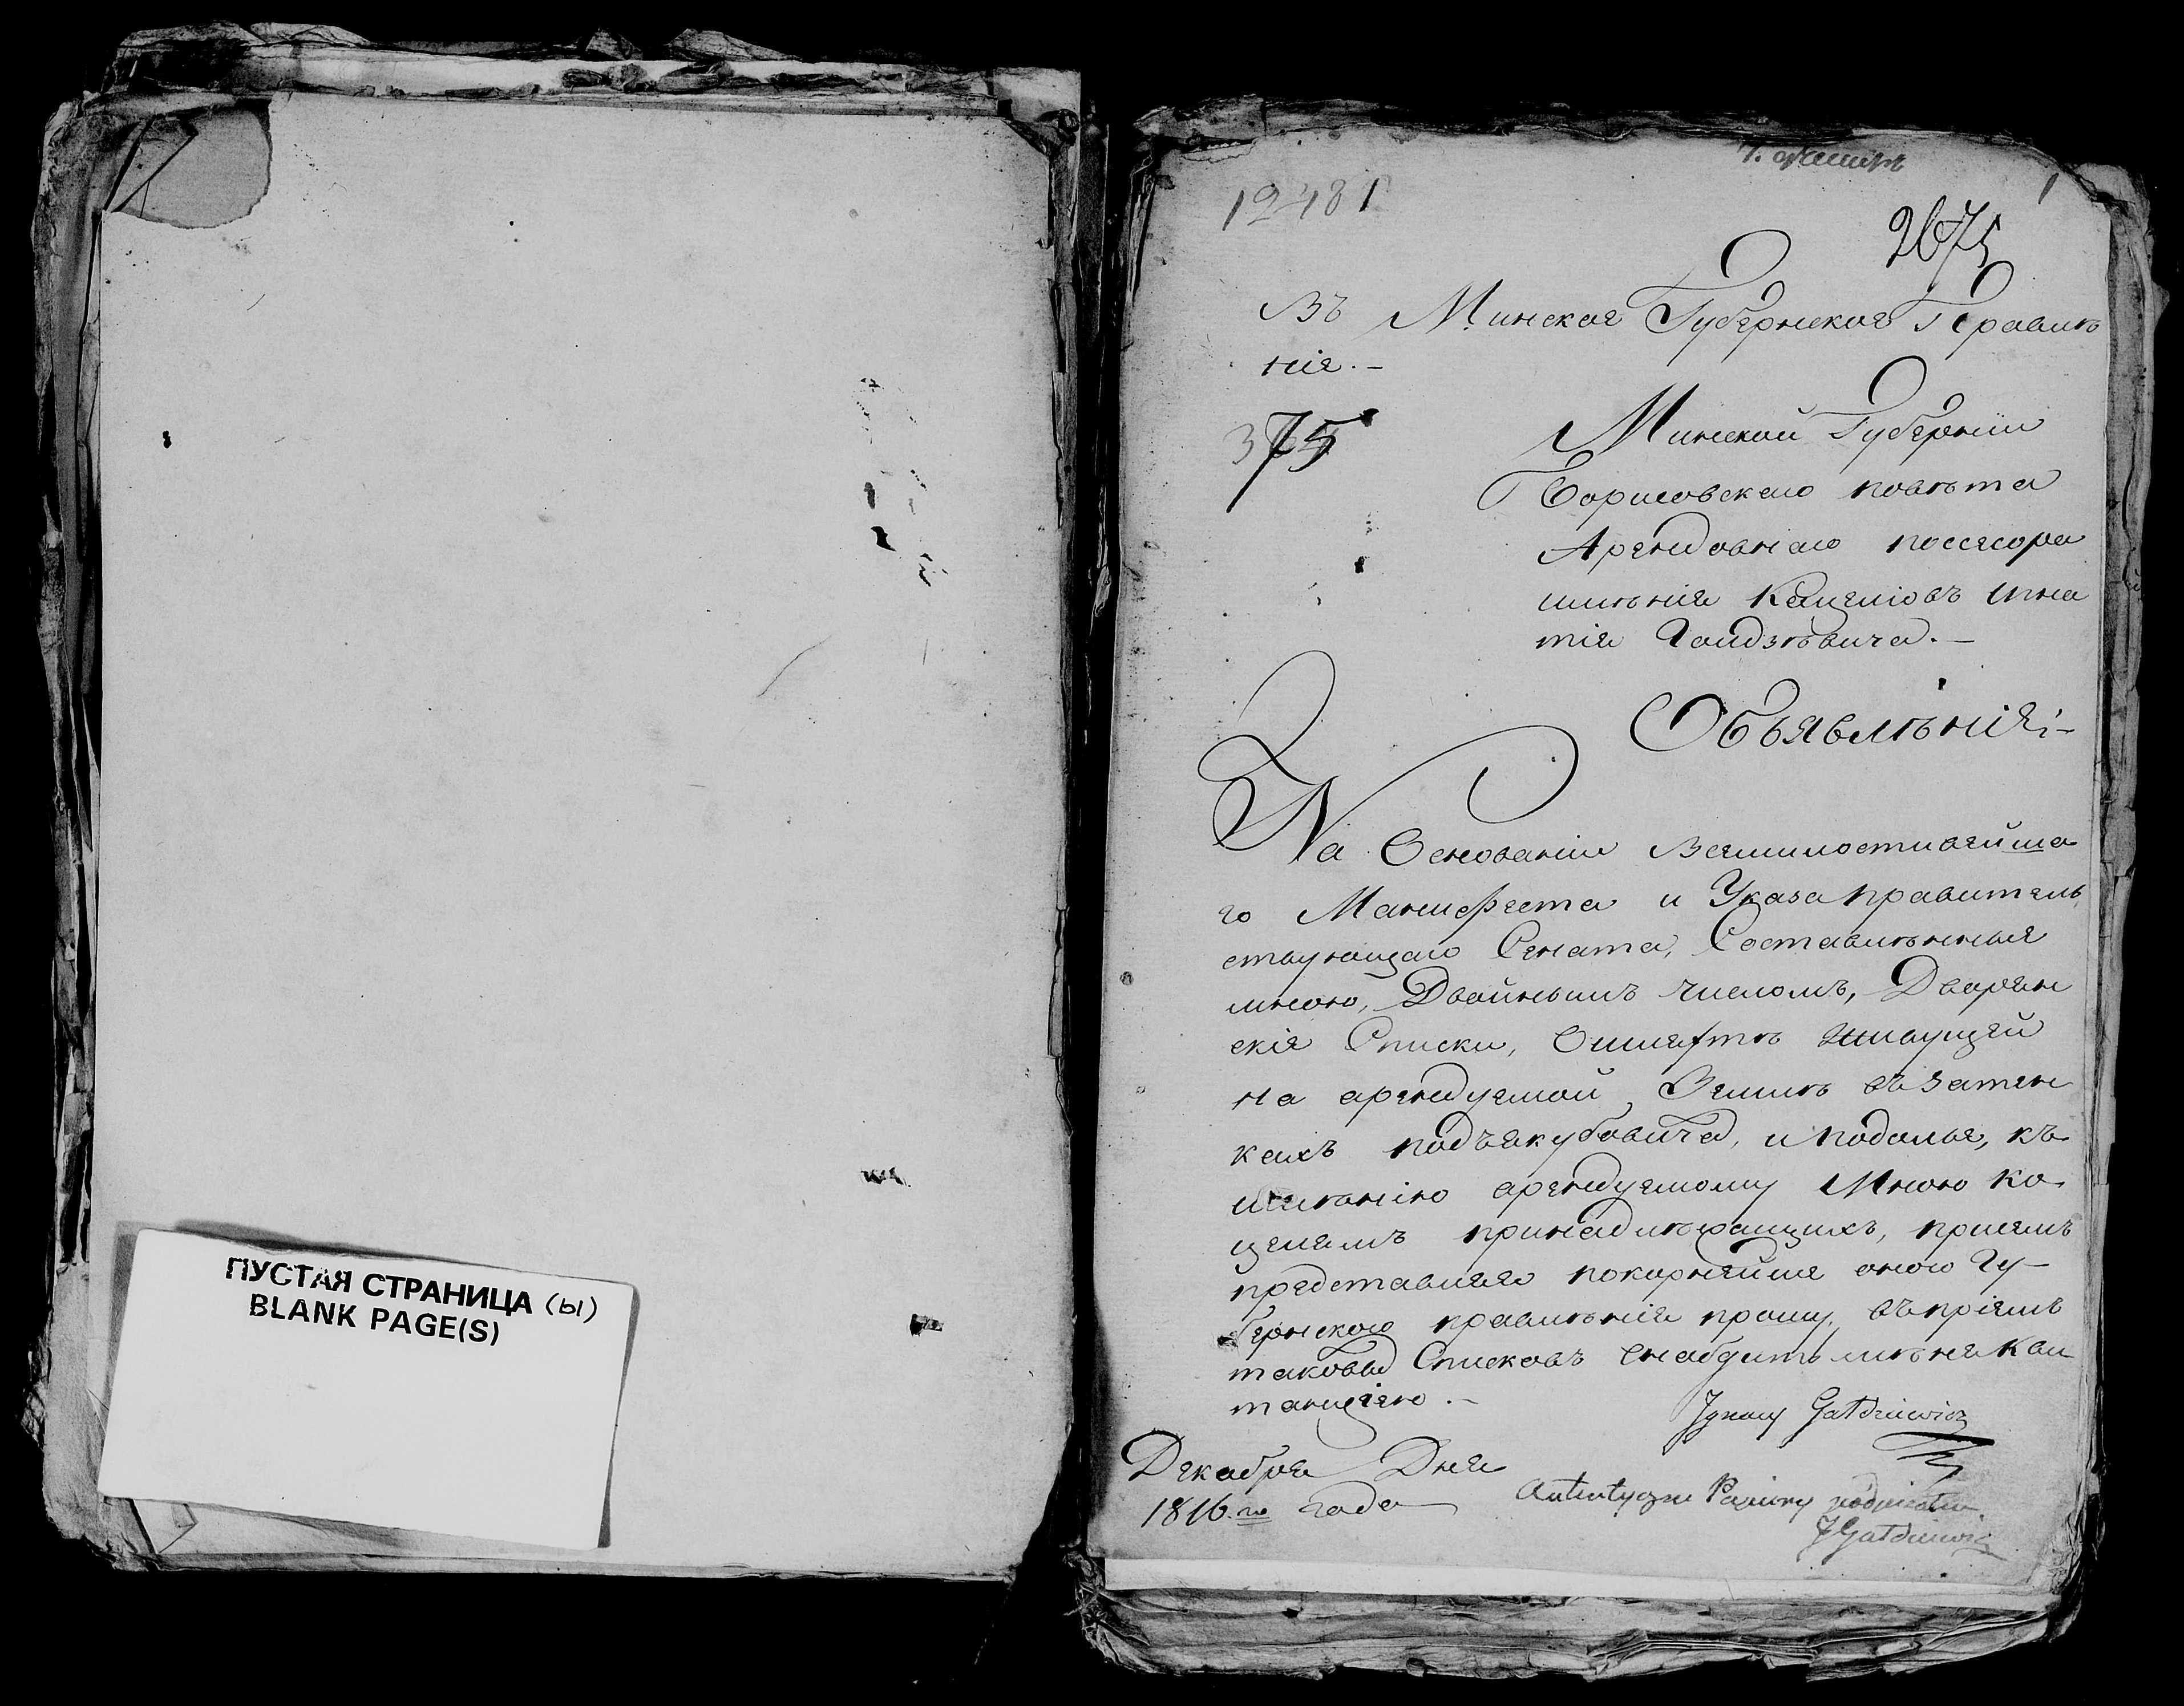 ПУСТАЯ СТРАНИЦА (ы)
BLANK PAGE(S)
12481
1
2675
Въ Минское Губернское Правлѣ
ніе.-
375
Минской Губерніи
Борисовскаго повѣта
Арендовнаго поссесора
имѣнія Каценовъ Игна
тія Гандзѣвича.-
Объявлѣніе:-
На Основаніи Всемилостивейша
го Манифеста и Указа правитель
ствующаго Сената, Составлѣнные
мною, Двойнымъ числомъ, Дворян
скіе Списки, О шляхтѣ живущей
на арендуемой Землѣ въ Застен
кахъ подъякубовича, и подолье, къ
имѣнію арендуемому Мною Ка
ценамъ принадлѣжащихъ, присемъ
представляя покорнейше оного Гу-
бернского правлѣнія прошу, въ пріемѣ
таковых Списковъ Снабдить мѣня Кви
танціею.-
Ignacy Gałdziewicz
Декабря Дня
1816.го года
Autentyczne Papiery odebrałem
JGałdziewicz